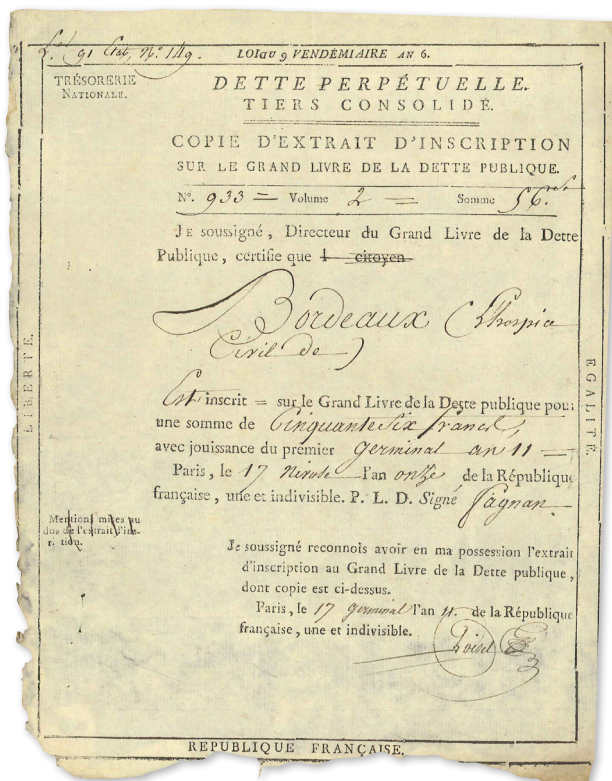 L. 91 Etat, N.º 149.
LOI du 9 VENDÉMIAIRE AN 6.
TRÉSORERIE
NATIONALE.
DETTE PERPÉTUELLE.
TIERS CONSOLIDÉ.
COPIE D'EXTRAIT D'INSCRIPTION
SUR LE GRAND LIVRE DE LA DETTE PUBLIQUE.
Nº. 933 = Volume 2 = Somme 56.
JE soussigné, Directeur du Grand Livre de la Dette
Publique, certifie que l citoyen
Bordeaux (L'hospice
Civil de)
Est inscrit = sur le Grand Livre de la Dette publique pour
une somme de Cinquante Six francs,
avec jouissance du premier germinal an 11 —
Paris, le 17 nivose l'an onze de la République
française, une et indivisible. P. L. D. Signé
Mentions mises au
dos de l'extrait d'ins-
r. tion.
Je soussigné reconnois avoir en ma possession l'extrait
d'inscription au Grand Livre de la Dette publique,
dont copie est ci-dessus.
Paris, le 17 germinal l'an 11. de la République
française, une et indivisible.
LIBERTÉ.
EGALITÉ.
RÉPUBLIQUE FRANÇAISE.